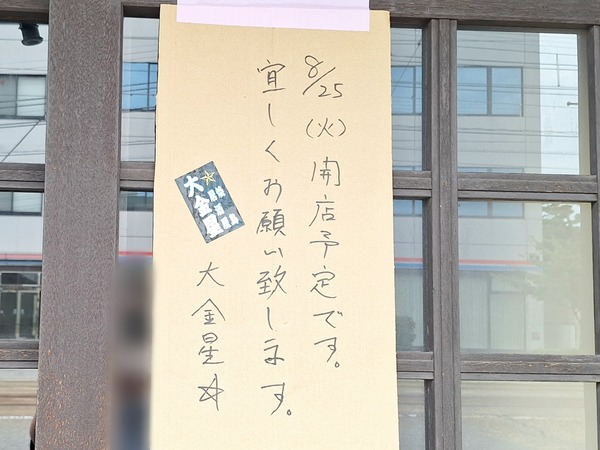 8/25(火)開店予定です。
宜しくお願い致します。
大金星☆
大金星